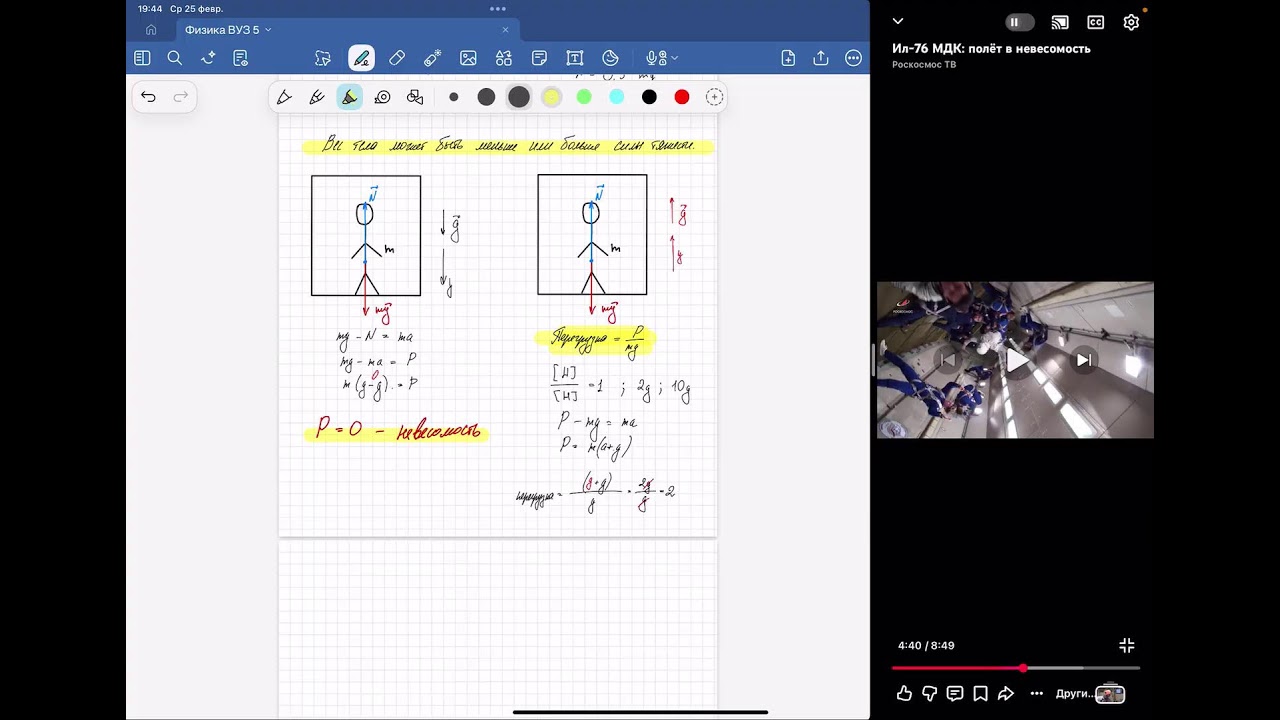 19:44 Ср 25 февр.
Физика ВУЗ 5
Вес тела может быть меньше или больше силы тяжести.
N
m
g
y
mg
mg - N = ma
mg - ma = P
0
m(g-g) = P
P = 0 - невесомость
N
m
g
y
mg
Перегрузка = P/mg
[Н]/[Н] = 1 ; 2g ; 10g
P - mg = ma
P = m(a+g)
перегрузка = (g+g)/g = 2g/g = 2
Ил-76 МДК: полёт в невесомость
Роскосмос ТВ
CC
РОСКОСМОС
4:40 / 8:49
Други...